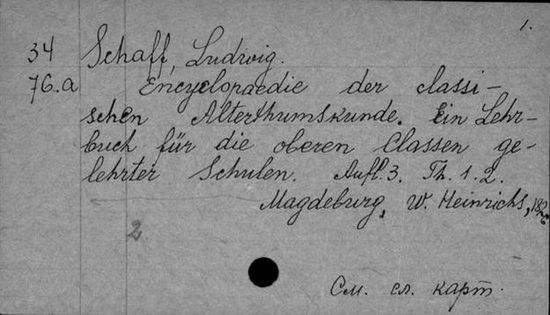 1.
34 Schaff, Ludwig.
76.a Encyclopaedie der classi-
schen Alterthumskunde. Ein Lehr-
buch für die oberen Classen ge-
lehrter Schulen. Aufl. 3. Th. 1. 2.
Magdeburg, W. Heinrichs,
2
См. сл. карт.